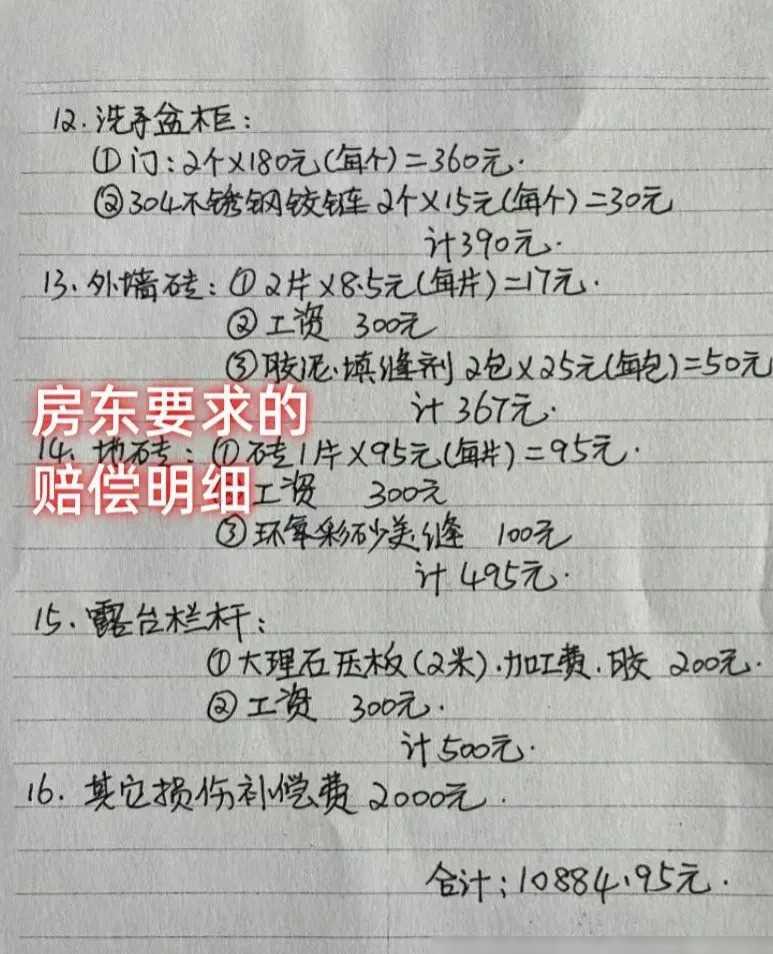 12.洗手盆柜:
①门:2个×180元(每个)=360元.
②304不锈钢铰链 2个×15元(每个)=30元
计390元.
13.外墙砖:①2片×8.5元(每片)=17元.
②工资 300元
③胶泥.填缝剂 2包×25元(每包)=50元
计 367元.
房东要求的
14.地砖:①砖1片×95元(每片)=95元.
赔偿明细
工资 300元
③环氧彩砂美缝 100元
计 495元.
15.露台栏杆:
①大理石压板(2米).加工费.胶 200元.
②工资 300元.
计500元.
16.其它损伤补偿费 2000元.
合计:10884.95元.